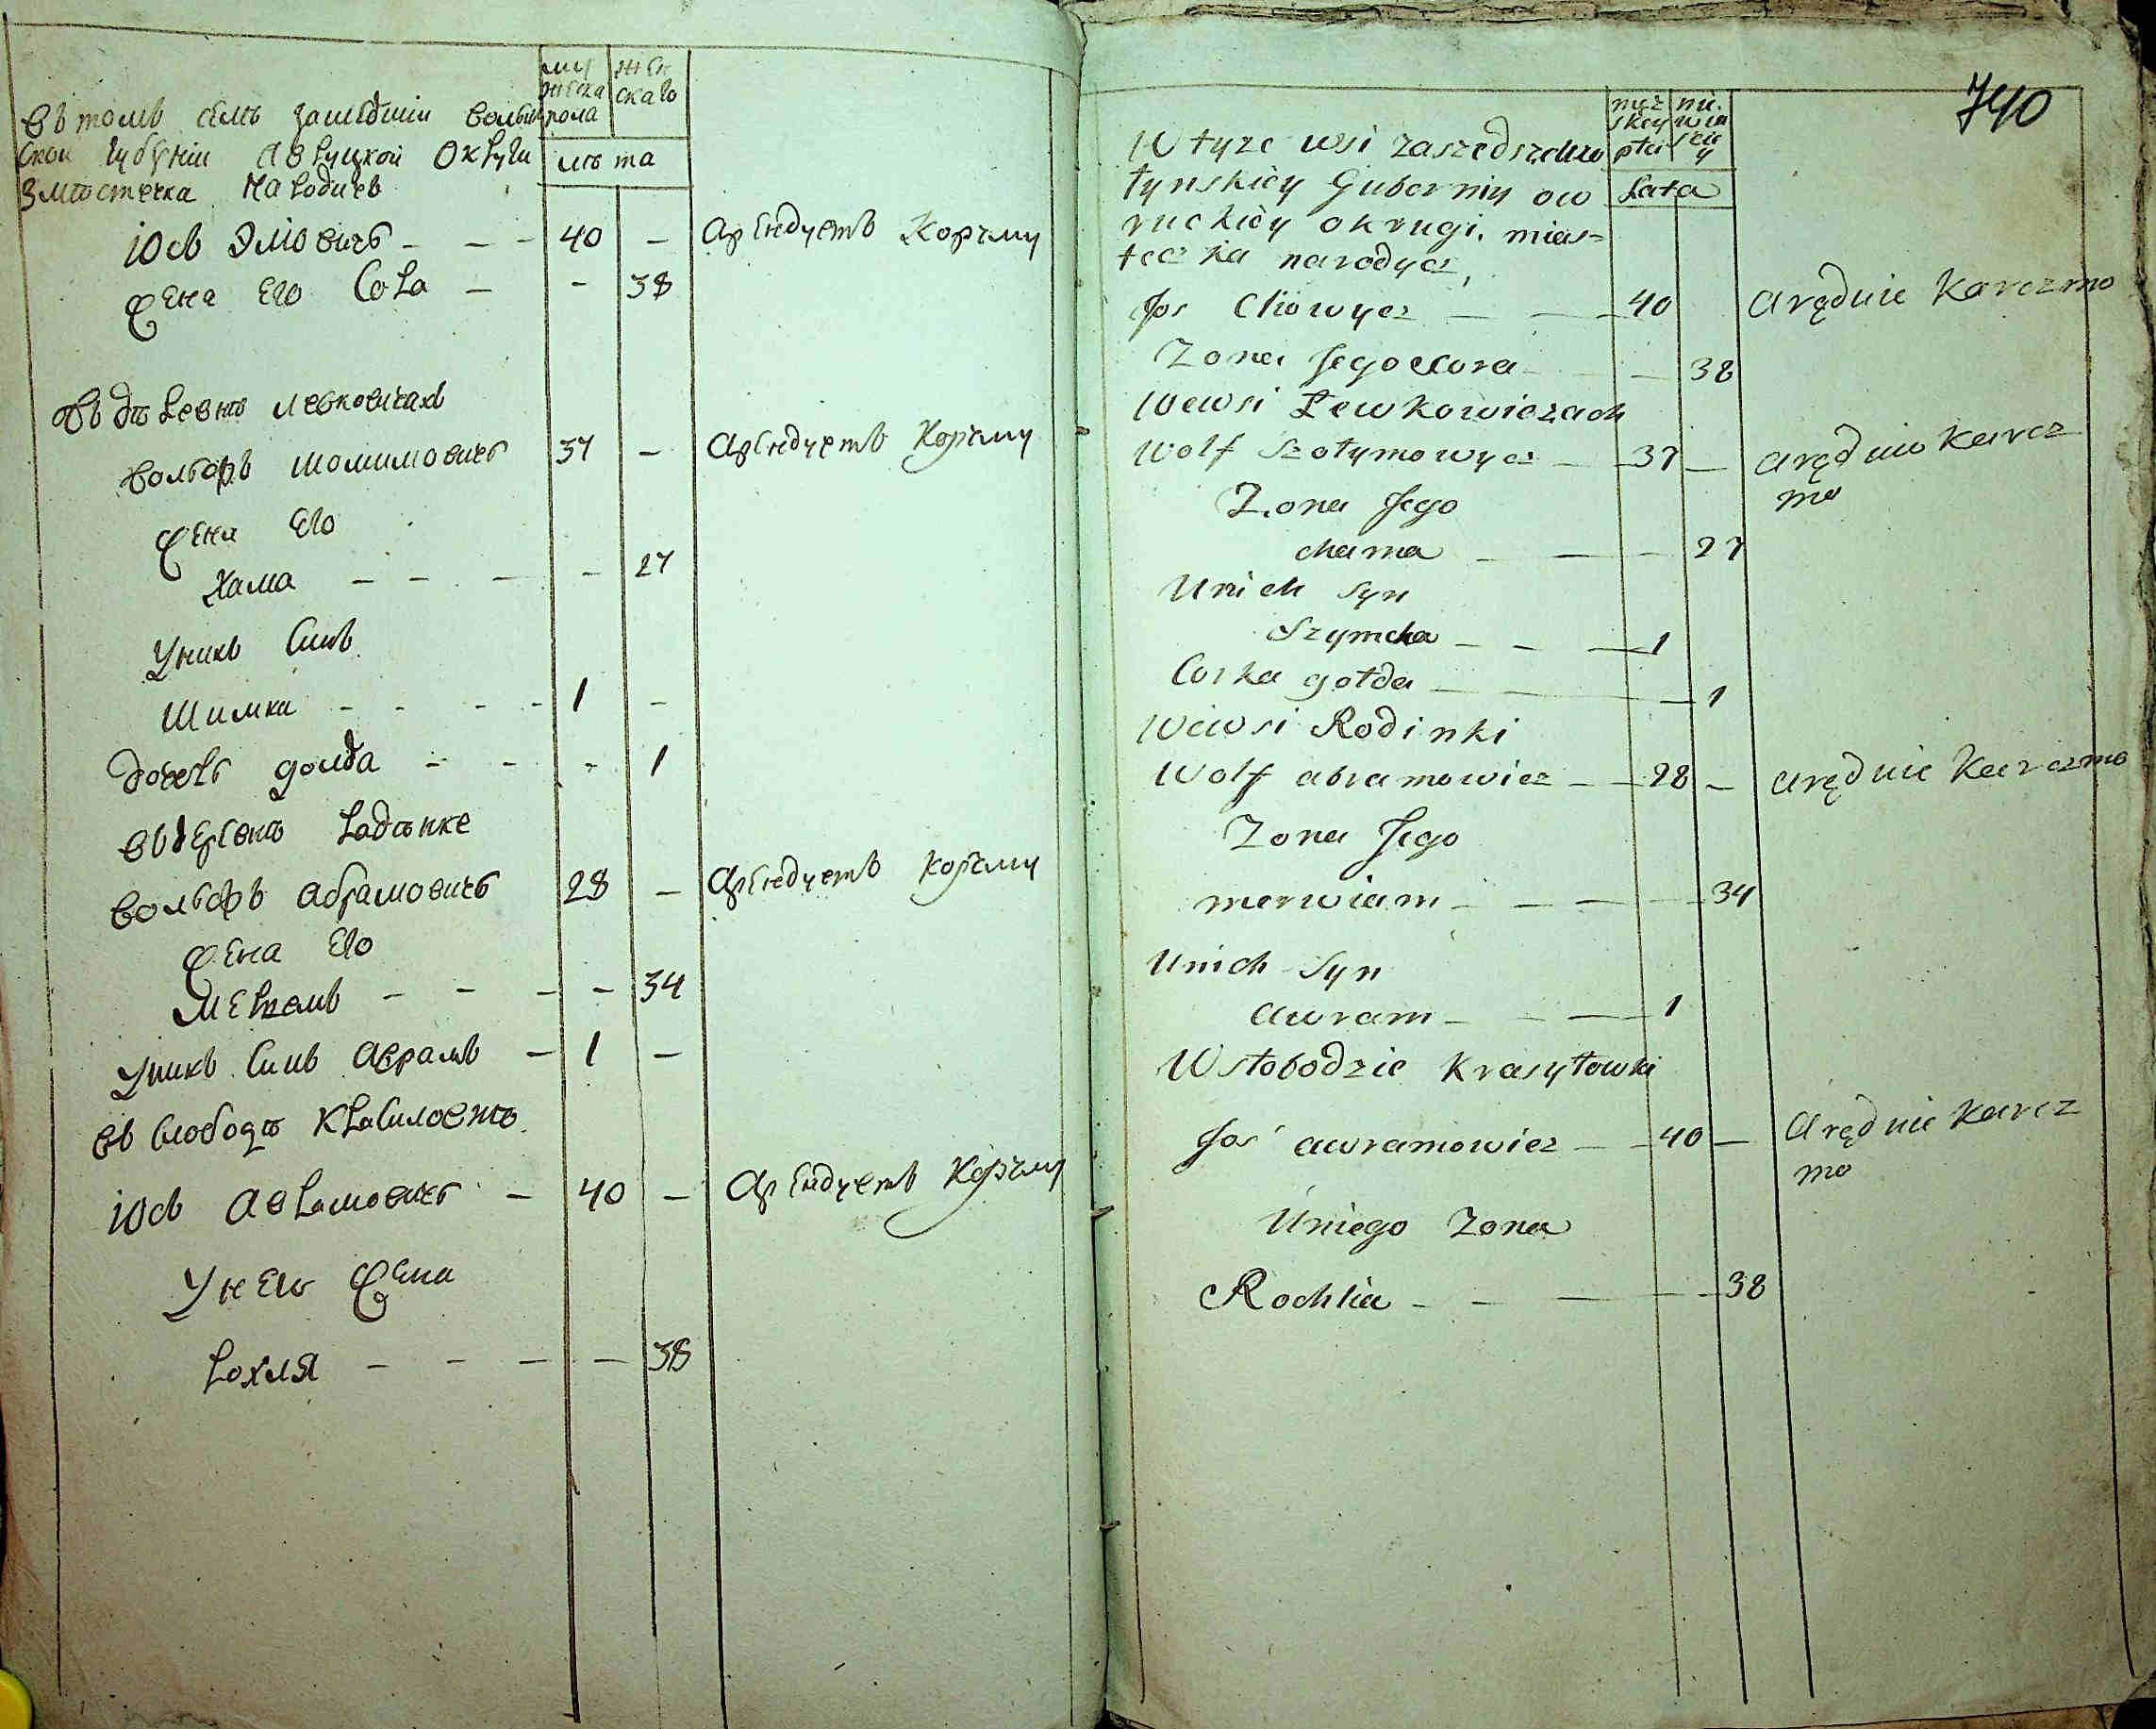 въ томъ селѣ зашедшіи волын
ской губерніи Авруцкой Округи
Змѣстечка Народичъ
муж
жеска
пола
жен
скаго
лѣ та
Іось Эліовичъ - - - 40 - Арендуетъ Корчму
Жена Его Сора - - 38
Въ дѣревнѣ Левковичахъ
Вольфъ шолимовичъ 37 - Арендуетъ Корчму
Жена Его
Хама - - - - 27
У нихъ Синъ
Шимка - - - - 1 -
дочерь golda - - - 1
въ деревнѣ Радѣнке
Вольфъ абрамовичъ 28 - Арендуетъ Корчму
Жена Его
Мерѣамъ - - - - 34
У нихъ Синъ Аврамъ - 1 -
въ Слободѣ Красиловкѣ
Іось Аврамовичъ - 40 - Арендуетъ Корчму
У него Жена
Рохля - - - - 38
740
W tyze wsi zaszedszełwo
łynskiey Guberniy ow
ruckiey okrugi. mias=
teczka narodycz
męz
skey
płci
Lata
Jos Eliowycz — — 40 Aręduie Karczmo
Zona Jego Sora - — 38
We wsi Lewkowiczach
Wolf Szołymowycz — 37 — aręduie karcz
mo
Zona Jego
chama — — - 27
Unich Syn
Szymcha - - — 1
Corka gołda — — 1
We wsi Rodinki
Wolf abramowicz - — 28 — aręduie Karczmo
Zona Jego
merwiam - — — - 34
Unich Syn
awram - - — 1
W słobodzie Krasyłowki
Jos awramowicz — - 40 — Aręduie karcz
mo
Uniego Zona
Rochla - - — — 38